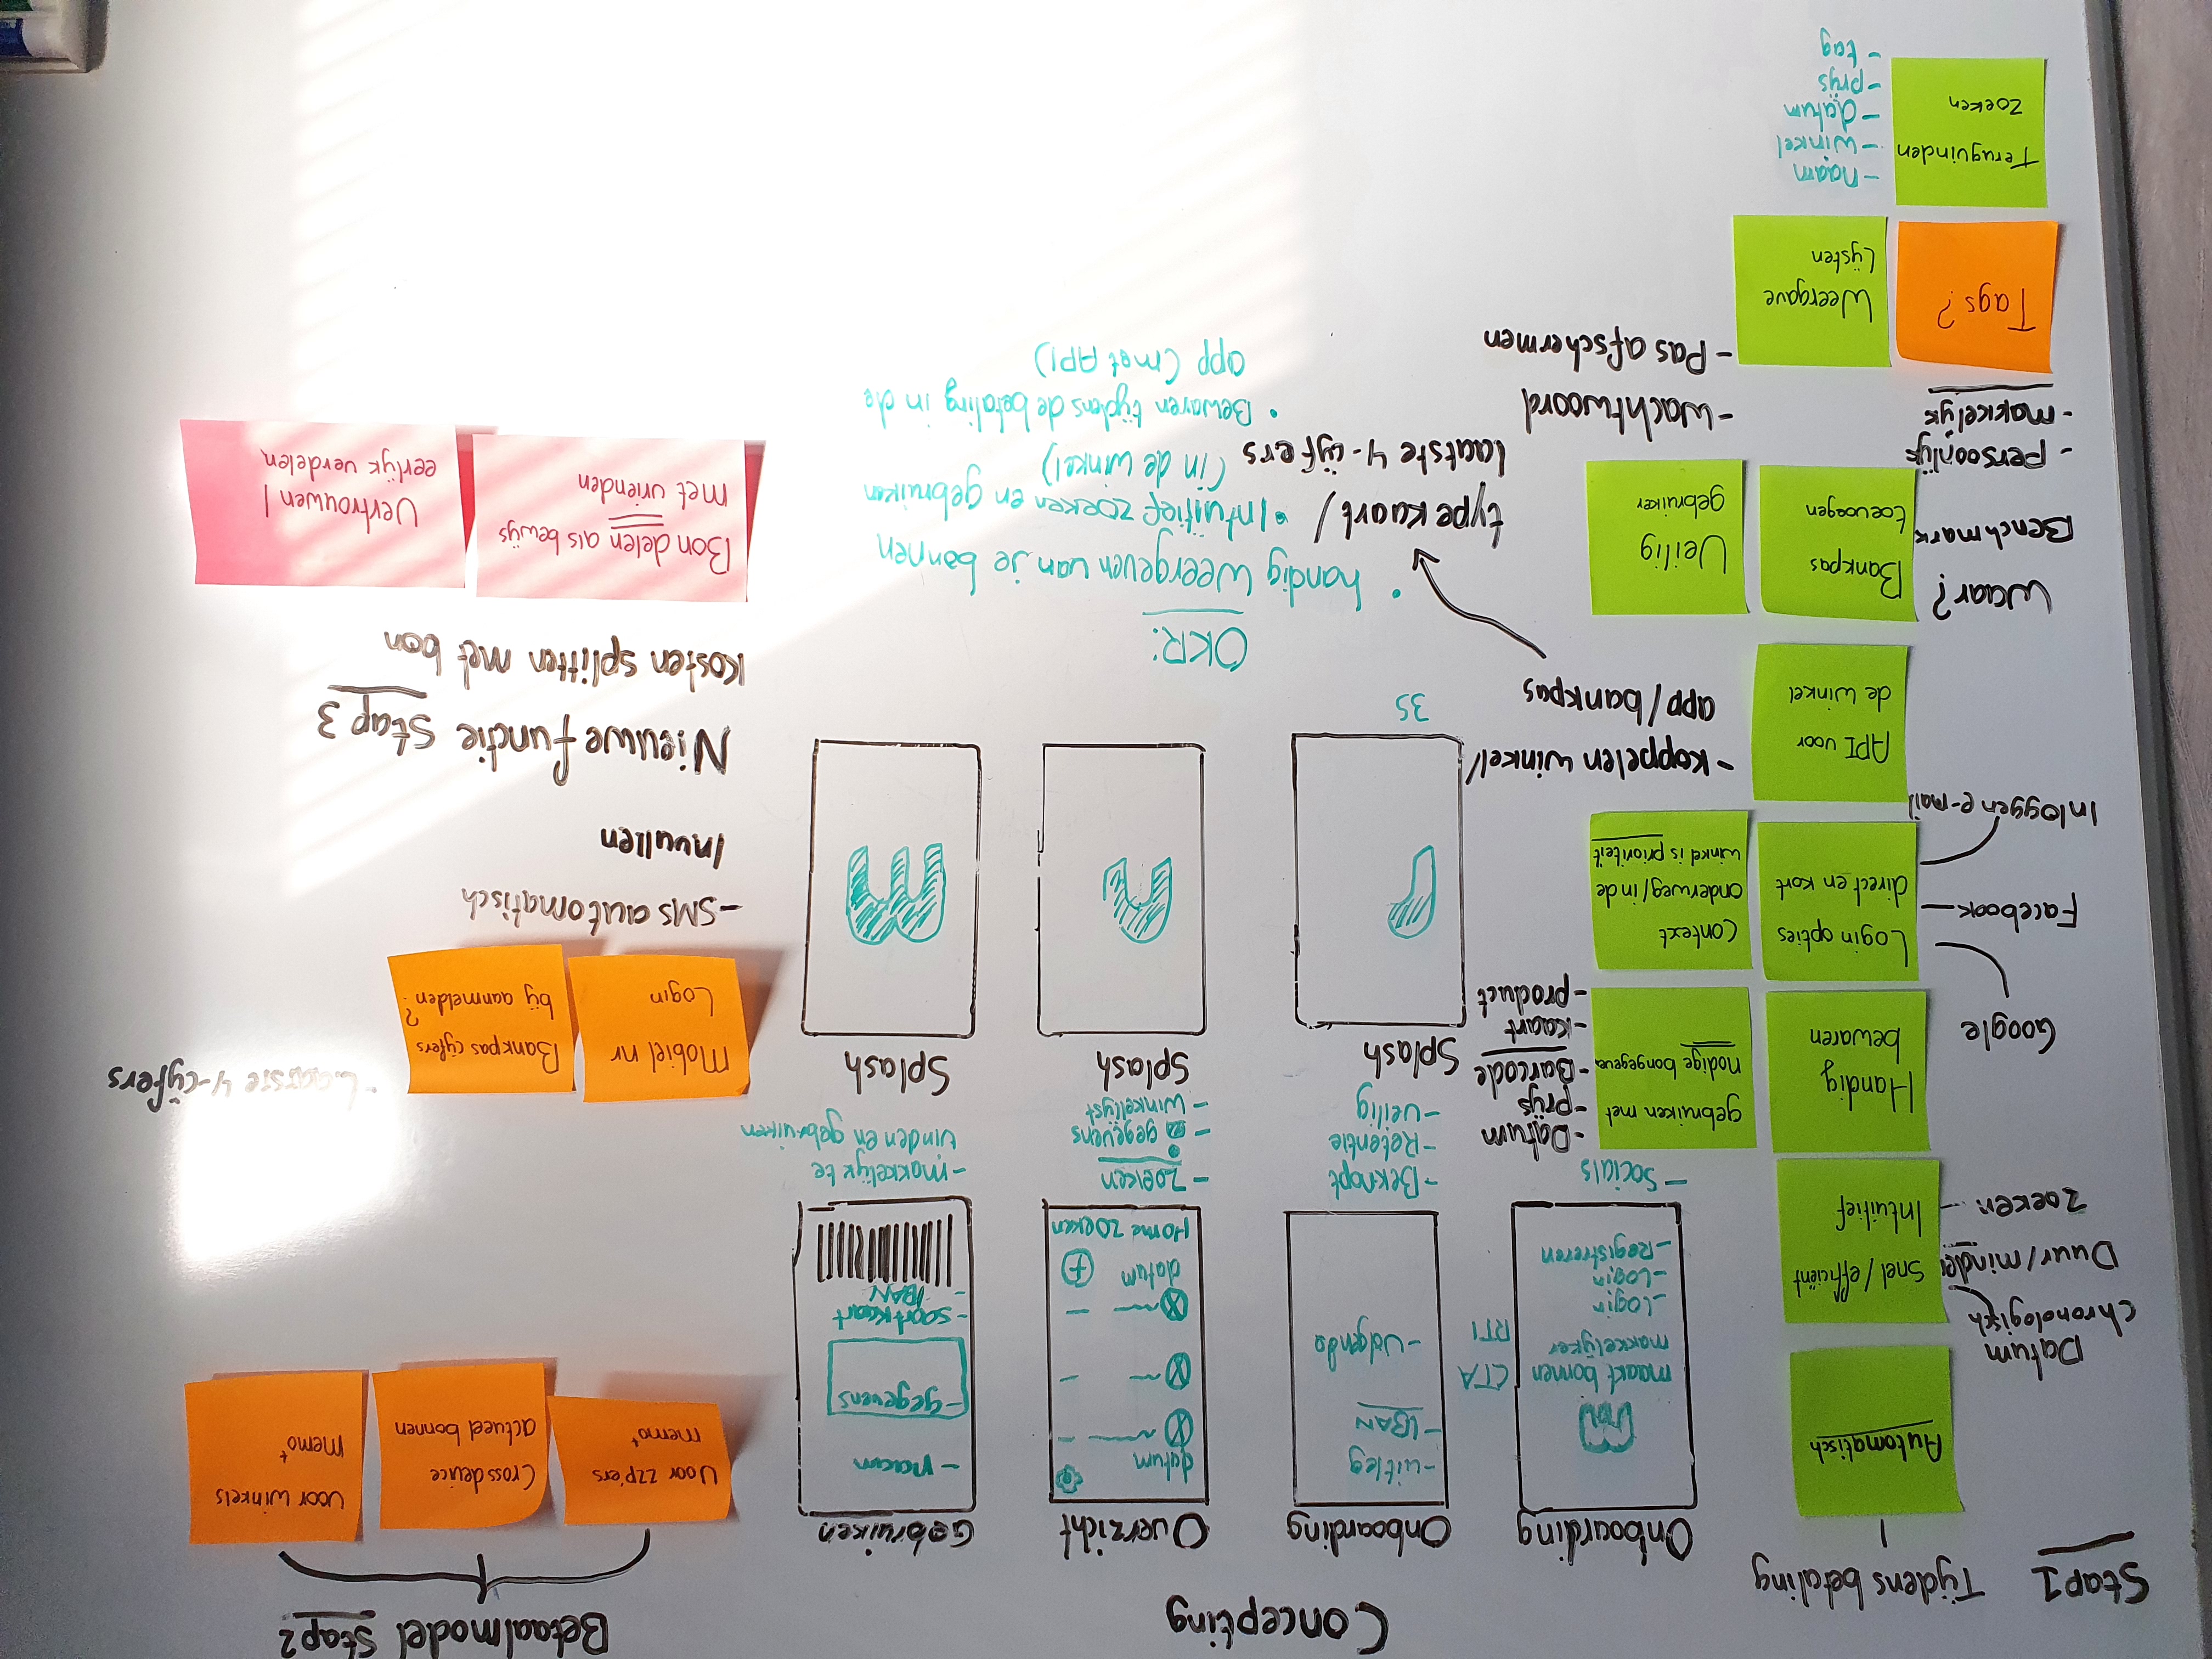 Concepting
Stap 1
Tijdens betaling
Automatisch
Datum
chronologisch
Duur/minder
Zoeken
Snel/efficiënt
Intuitief
Handig
bewaren
gebruiken met
nodige bongegeven
- Datum
- prijs
- Barcode
- kaart
- product
Google
Facebook
Inloggen e-mail
Login opties
direct en kort
Context
onderweg/in de
winkel is prioriteit
API voor
de winkel
- koppelen winkel/
app/bankpas
type kaart/
laatste 4-cijfers
Waar?
Benchmark
- persoonlijk
- makkelijk
Bankpas
toevoegen
Veilig
gebruiker
- Wachtwoord
- Pas afschermen
Tags?
Weergave
Lijsten
Terugvinden
zoeken
- naam
- winkel
- datum
- prijs
- tag
Onboarding
m
maakt bonnen
makkelijker
- Login
- Login
- Registreren
CTA
RTI
- Socials
Onboarding
- uitleg
- IBAN
- Volgende
- Beknopt
- Retentie
- veilig
Overzicht
datum
datum
+
Home zoeken
- Zoeken
- gegevens
- winkellijst
Gebruiken
- naam
- gegevens
- soort kaart
- IBAN
- makkelijk te
vinden en gebruiken
Splash
3s
Splash
n
Splash
m
OKR:
• handig weergeven van je bonnen
• Intuïtief zoeken en gebruiken
(in de winkel)
• Bewaren tijdens de betaling in de
app (met API)
Betaalmodel Stap 2
Voor ZZP'ers
memo+
Cross device
actueel bonnen
Voor winkels
memo+
Mobiel nr
Login
Bankpas cijfers
bij aanmelden?
- Laatste 4-cijfers
- SMS automatisch
Invullen
Nieuwe functie Stap 3
Kosten splitten met bon
Bon delen als bewijs
met vrienden
Vertrouwen /
eerlijk verdelen